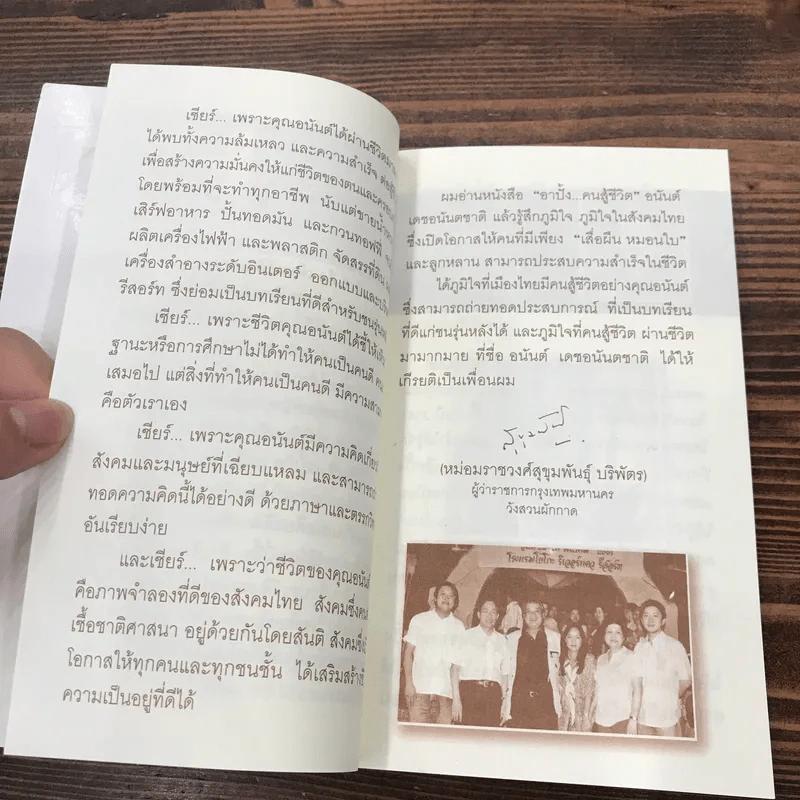 เชียร์... เพราะคุณอนันต์ได้ผ่านชีวิตมา
ได้พบทั้งความล้มเหลว และความสำเร็จ ต่อสู้
เพื่อสร้างความมั่นคงให้แก่ชีวิตของตนและ
โดยพร้อมที่จะทำทุกอาชีพ นับแต่ขายน้ำ
เสิร์ฟอาหาร ปั้นทอดมัน และกวนทอฟฟี่
ผลิตเครื่องไฟฟ้า และพลาสติก จัดสรรที่ดิน
เครื่องสำอางระดับอินเตอร์ ออกแบบและ
รีสอร์ท ซึ่งย่อมเป็นบทเรียนที่ดีสำหรับชนรุ่น
เชียร์... เพราะชีวิตคุณอนันต์ได้ชี้ให้
ฐานะหรือการศึกษาไม่ได้ทำให้คนเป็นคนดี
เสมอไป แต่สิ่งที่ทำให้คนเป็นคนดี มีความ
คือตัวเราเอง
เชียร์... เพราะคุณอนันต์มีความคิด
สังคมและมนุษย์ที่เฉียบแหลม และสามารถ
ทอดความคิดนี้ได้อย่างดี ด้วยภาษาและ
อันเรียบง่าย
และเชียร์... เพราะว่าชีวิตของคุณอนันต์
คือภาพจำลองที่ดีของสังคมไทย สังคมซึ่ง
เชื้อชาติศาสนา อยู่ด้วยกันโดยสันติ สังคม
โอกาสให้ทุกคนและทุกชนชั้น ได้เสริมสร้าง
ความเป็นอยู่ที่ดีได้
ผมอ่านหนังสือ "อาปั้ง...คนสู้ชีวิต" อนันต์
เดชอนันตชาติ แล้วรู้สึกภูมิใจ ภูมิใจในสังคมไทย
ซึ่งเปิดโอกาสให้คนที่มีเพียง "เสื่อผืน หมอนใบ"
และลูกหลาน สามารถประสบความสำเร็จในชีวิต
ได้ภูมิใจที่เมืองไทยมีคนสู้ชีวิตอย่างคุณอนันต์
ซึ่งสามารถถ่ายทอดประสบการณ์ ที่เป็นบทเรียน
ที่ดีแก่ชนรุ่นหลังได้ และภูมิใจที่คนสู้ชีวิต ผ่านชีวิต
มามากมาย ที่ชื่อ อนันต์ เดชอนันตชาติ ได้ให้
เกียรติเป็นเพื่อนผม
สุขุมพันธุ์
(หม่อมราชวงศ์สุขุมพันธุ์ บริพัตร)
ผู้ว่าราชการกรุงเทพมหานคร
วังสวนผักกาด